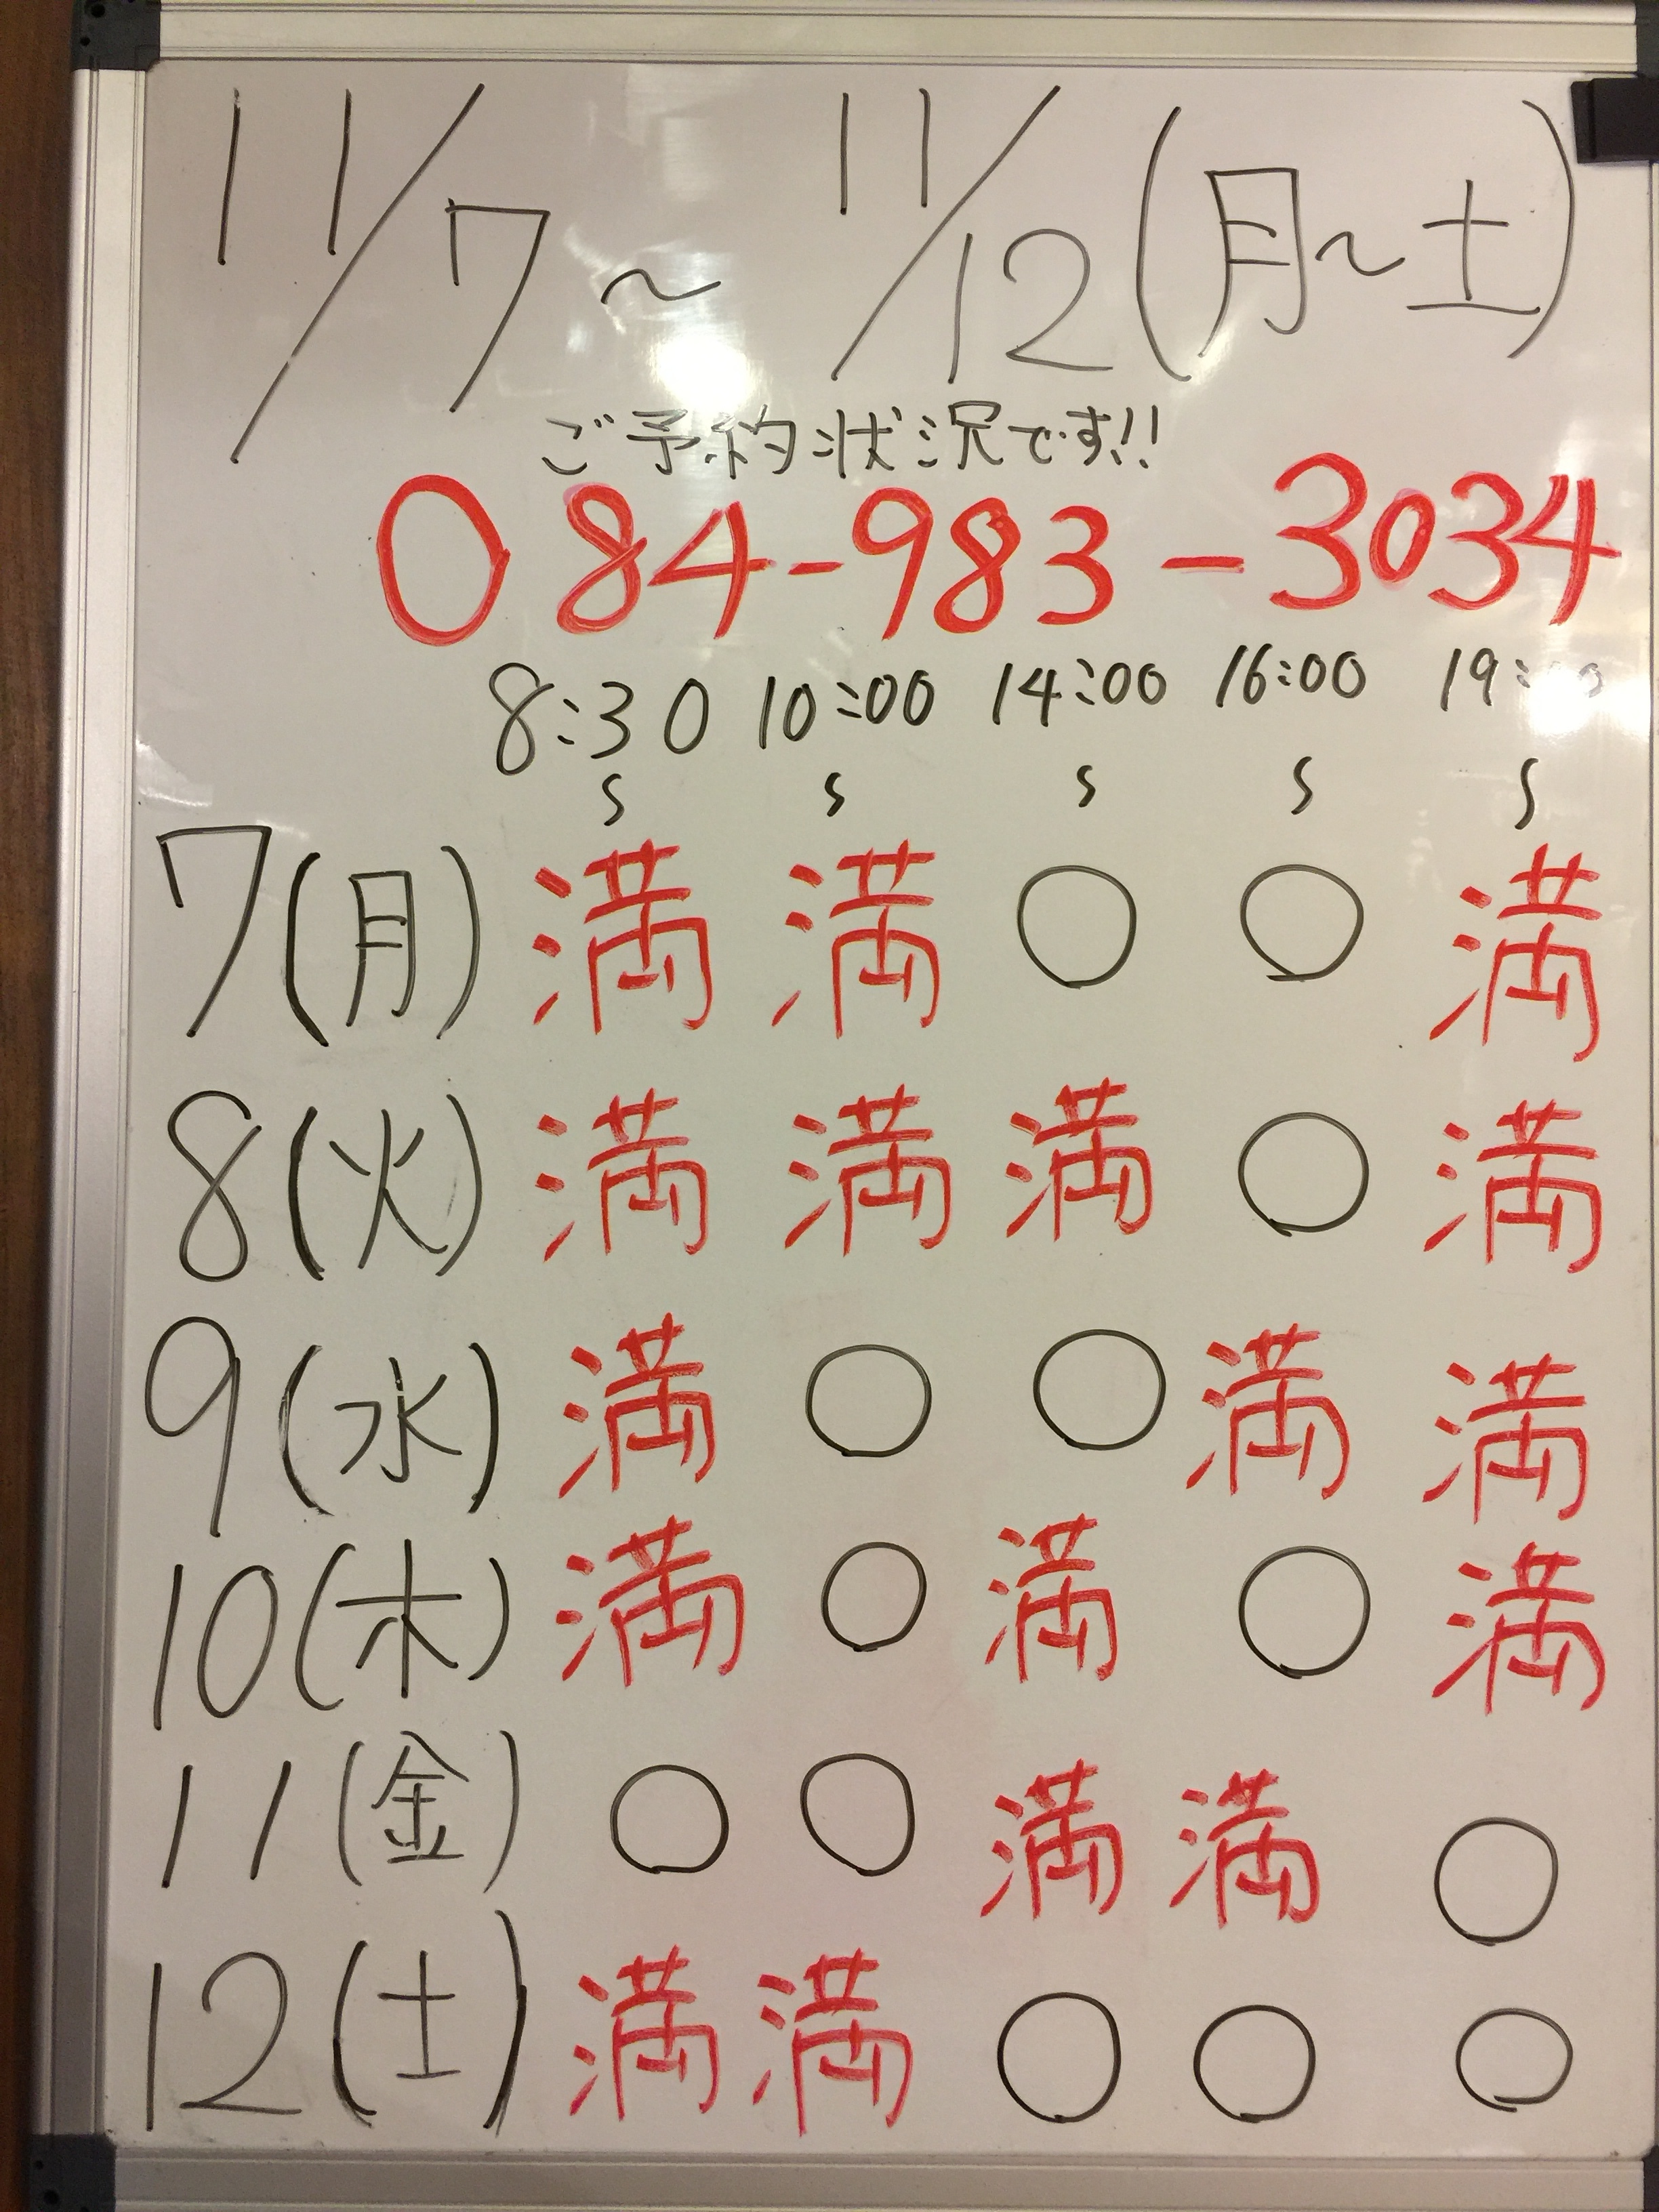 11/7～11/12(月～土)
ご予約状況です!!
084-983-3034
8:30 10:00 14:00 16:00 19:
～ ～ ～ ～ ～
7(月) 満 満 ○ ○ 満
8(火) 満 満 満 ○ 満
9(水) 満 ○ ○ 満 満
10(木) 満 ○ 満 ○ 満
11(金) ○ ○ 満 満 ○
12(土) 満 満 ○ ○ ○